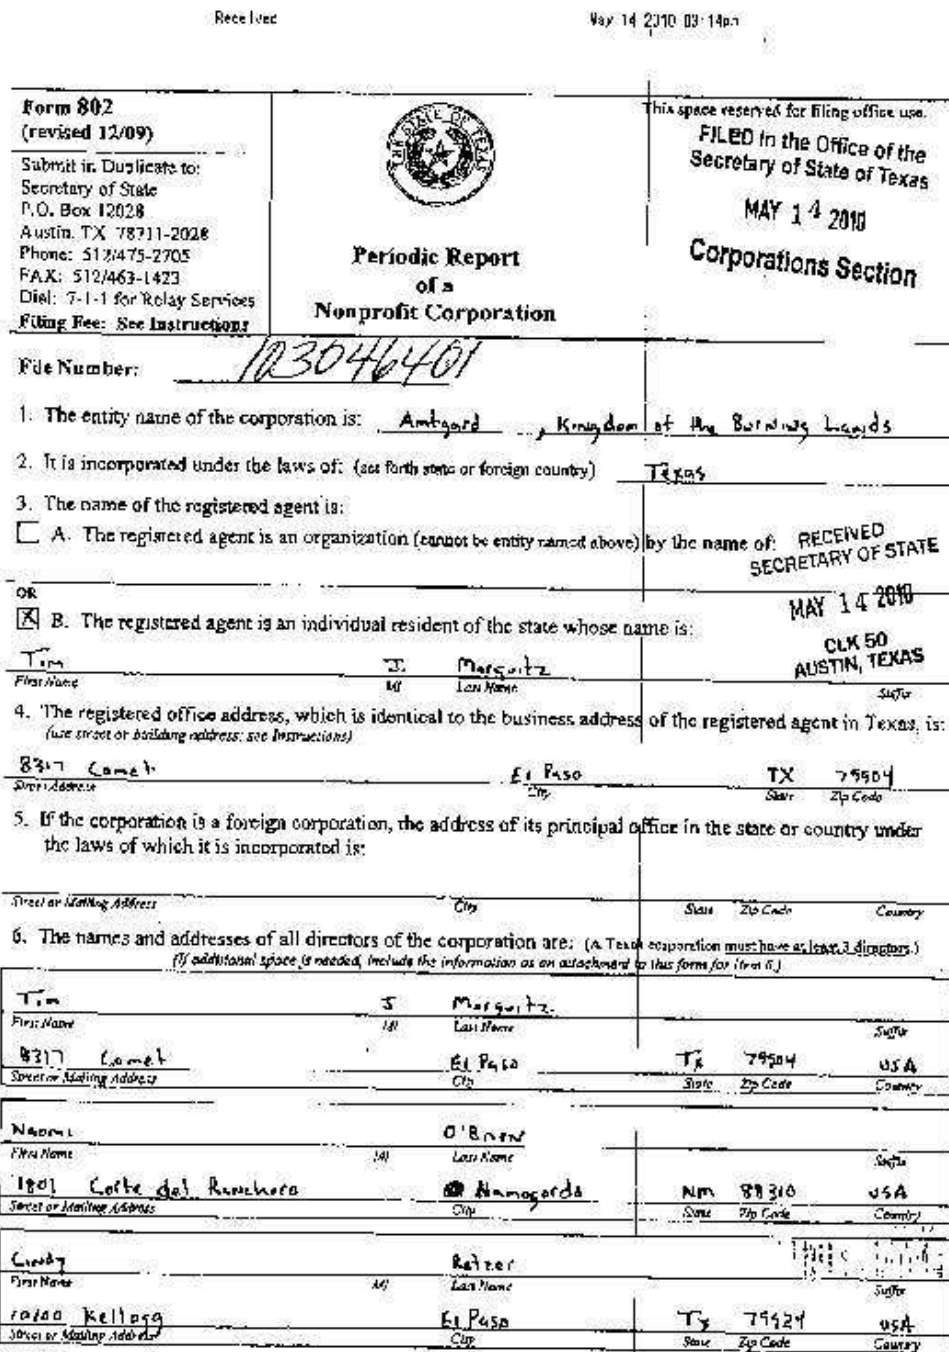 Received May 14 2010 03:14pm
Form 802
(revised 12/09)
Submit in Duplicate to:
Secretary of State
P.O. Box 12028
Austin, TX 78711-2028
Phone: 512/475-2705
FAX: 512/463-1423
Dial: 7-1-1 for Relay Services
Filing Fee: See Instructions
THE STATE OF TEXAS
Periodic Report
of a
Nonprofit Corporation
This space reserved for filing office use.
FILED in the Office of the
Secretary of State of Texas
MAY 14 2010
Corporations Section
File Number: 123046401
1. The entity name of the corporation is: Amtgard, Kingdom of the Burning Lands
2. It is incorporated under the laws of: (set forth state or foreign country) Texas
3. The name of the registered agent is:
A. The registered agent is an organization (cannot be entity named above) by the name of:
RECEIVED
SECRETARY OF STATE
MAY 14 2010
CLK 50
AUSTIN, TEXAS
OR
X B. The registered agent is an individual resident of the state whose name is:
Tim J. Marquitz
First Name MI Last Name Suffix
4. The registered office address, which is identical to the business address of the registered agent in Texas, is:
(use street or building address; see Instructions)
8317 Comet El Paso TX 79904
Street Address City State Zip Code
5. If the corporation is a foreign corporation, the address of its principal office in the state or country under
the laws of which it is incorporated is:
Street or Mailing Address City State Zip Code Country
6. The names and addresses of all directors of the corporation are: (A Texas corporation must have at least 3 directors.)
(If additional space is needed, include the information as an attachment to this form for item 6.)
Tim J Marquitz
First Name MI Last Name Suffix
8317 Comet El Paso Tx 79904 USA
Street or Mailing Address City State Zip Code Country
Naomi O'Brien
First Name MI Last Name Suffix
1801 Corte del Ranchero Alamogordo NM 88310 USA
Street or Mailing Address City State Zip Code Country
Cindy Retzer
First Name MI Last Name Suffix
10100 Kellogg El Paso Tx 79924 USA
Street or Mailing Address City State Zip Code Country